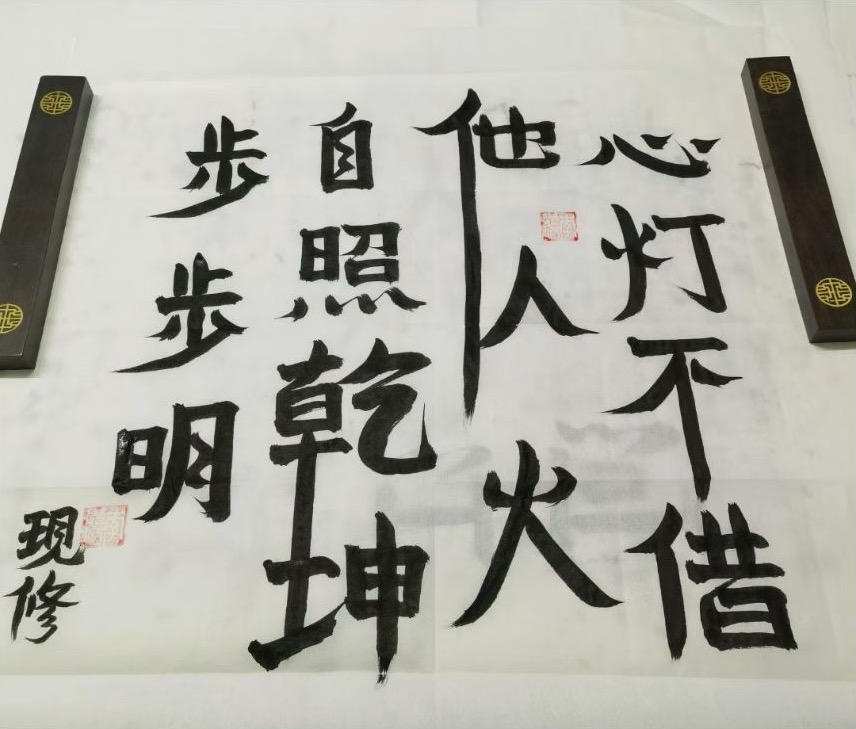 心灯不借
他人火
自照乾坤
步步明
现修